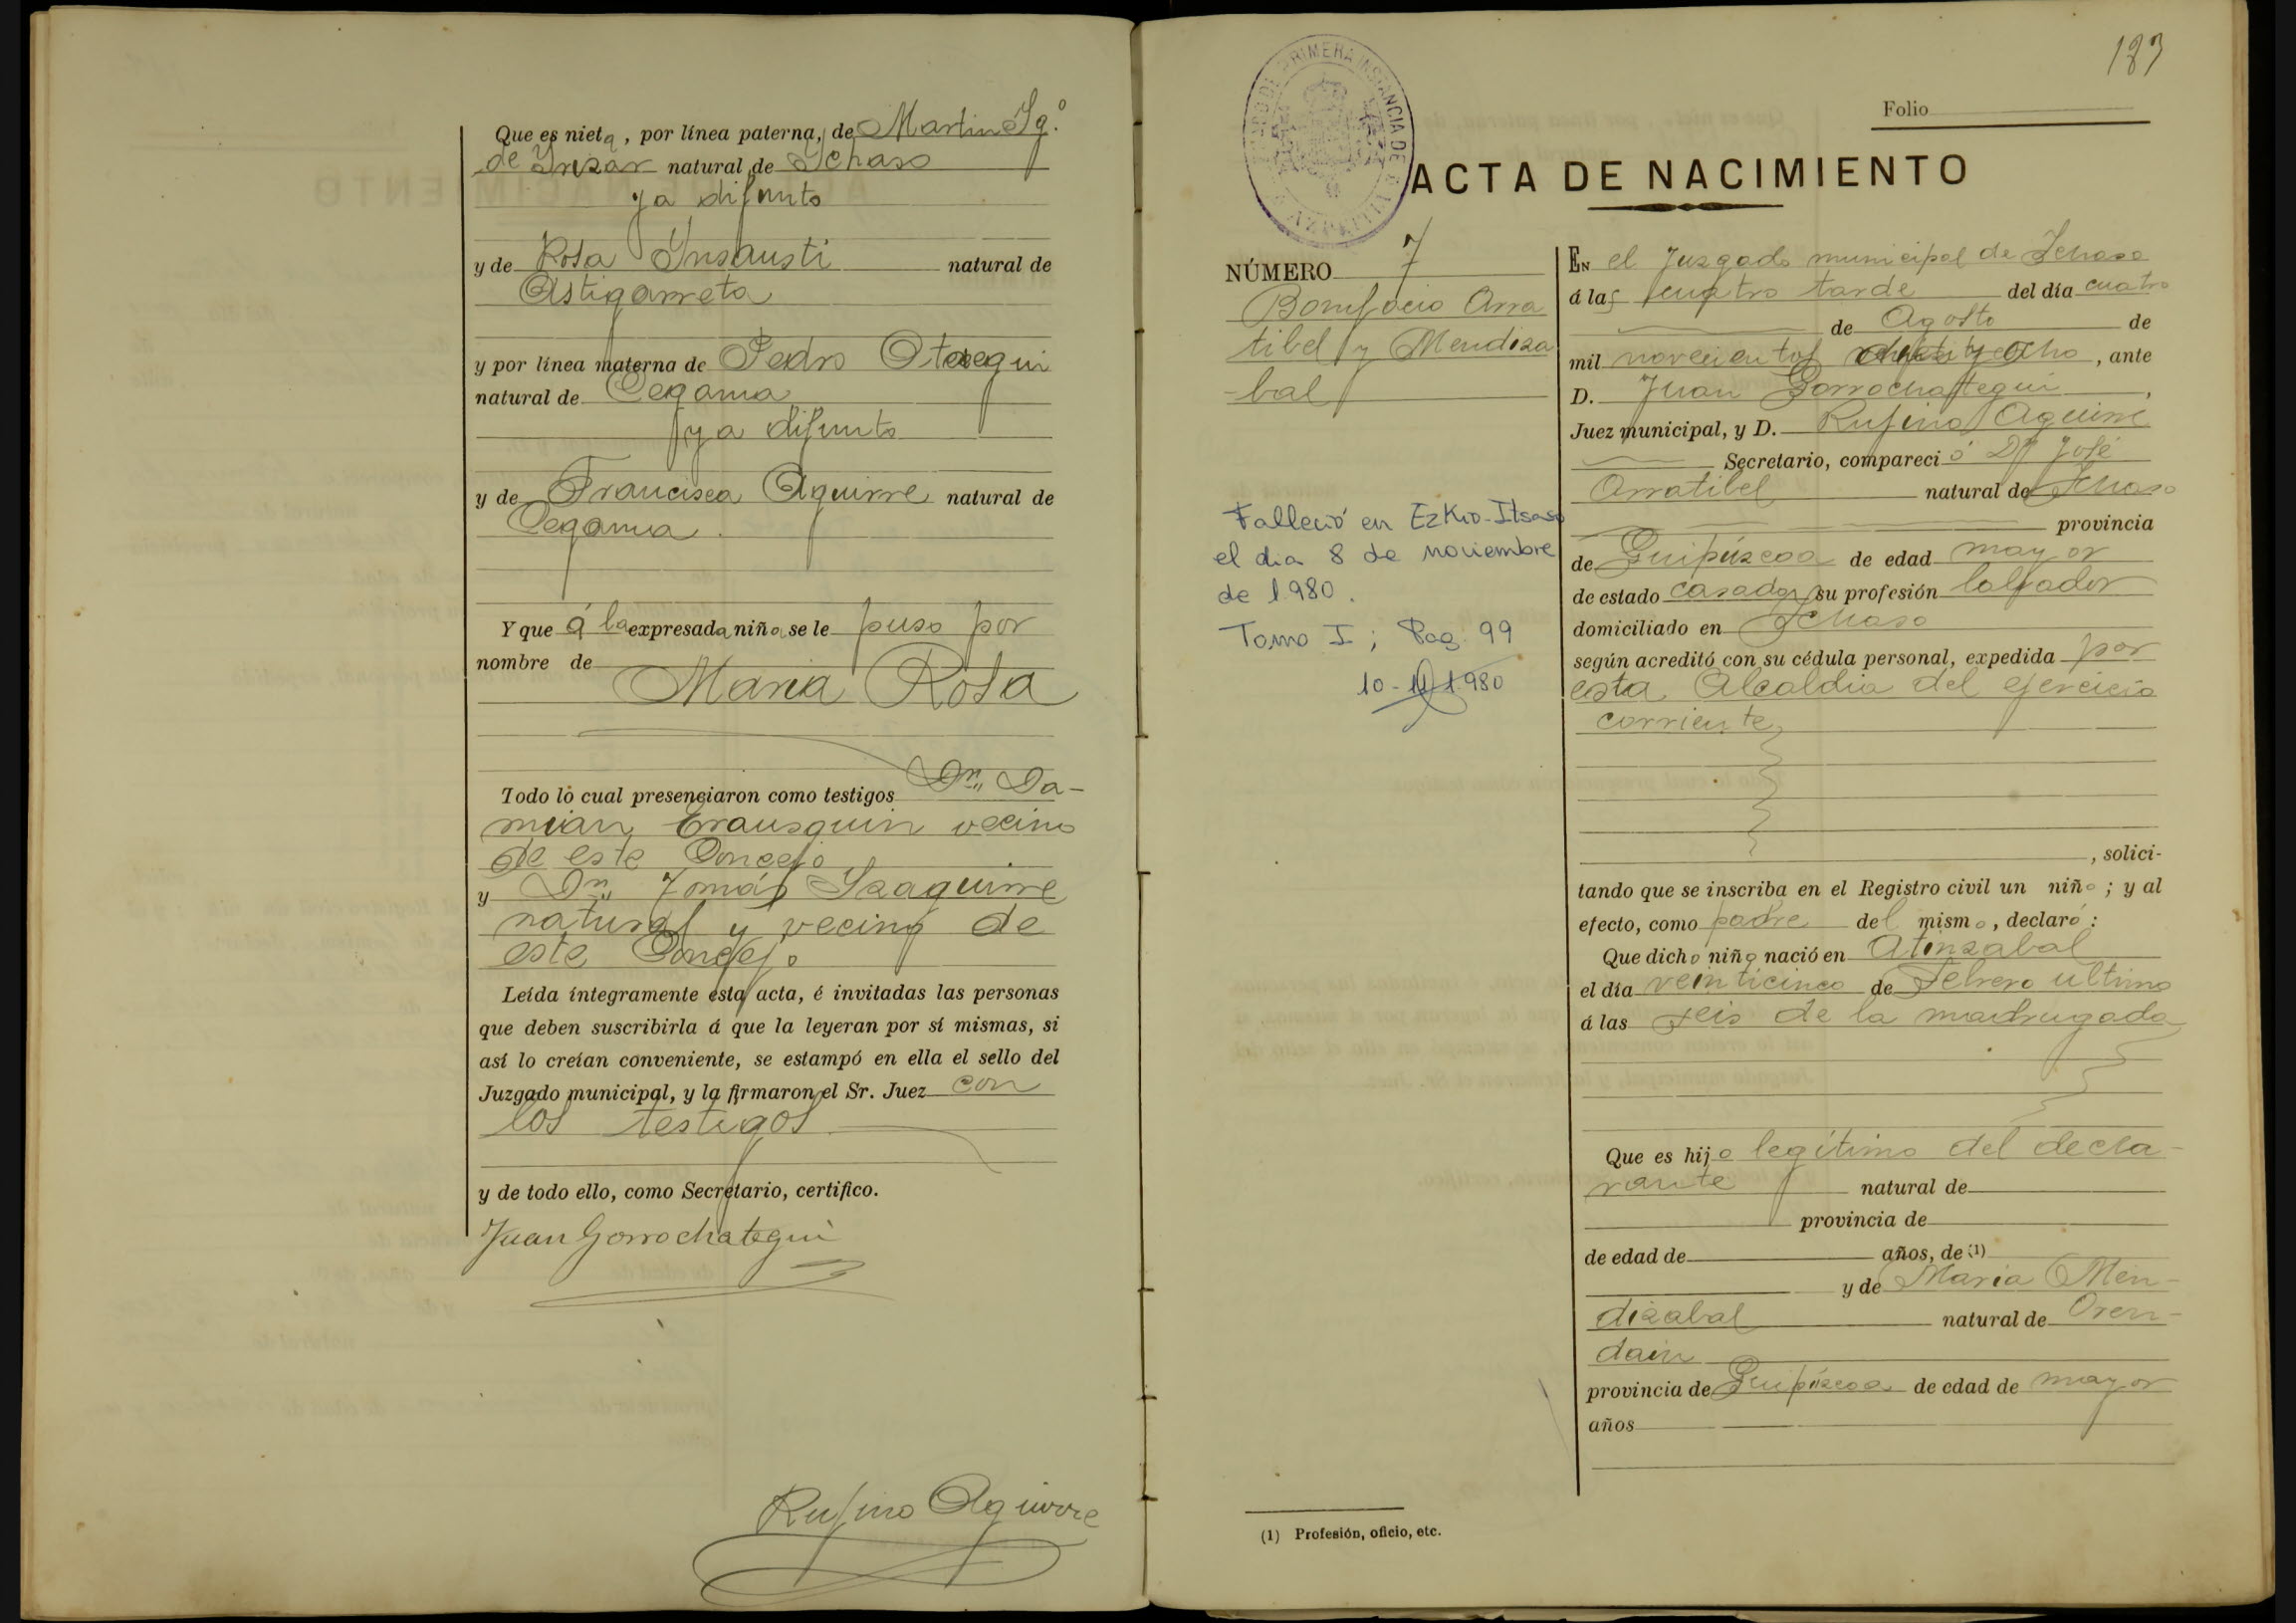 Que es nieta, por línea paterna, de Martin Ygº
de Yrizar natural de Ichaso
ya difunto
y de Rosa Ynsausti natural de
Astigarreta
y por línea materna de Pedro Otaegui
natural de Cegama
ya difunto
y de Francisca Aguirre natural de
Cegama
Y que á la expresada niña se le puso por
nombre de
Maria Rosa
Todo lo cual presenciaron como testigos Dn. Da-
mian Erausquin vecino
de este Concejo
y Dn. Tomás Izaguirre
natural y vecino de
este Concejo
Leída íntegramente esta acta, é invitadas las personas
que deben suscribirla á que la leyeran por sí mismas, si
así lo creían conveniente, se estampó en ella el sello del
Juzgado municipal, y la firmaron el Sr. Juez con
los testigos
y de todo ello, como Secretario, certifico.
Juan Gorrochategui
Rufino Aguirre
183
Folio
PRIMERA INSTANCIA DE
ACTA DE NACIMIENTO
NÚMERO 7
Bonifacio Arra
tibel y Mendiza
-bal
Falleció en Ezkio-Itsaso
el dia 8 de noviembre
de 1980.
Tomo I; Pag. 99
10-11-1980
EN el Juzgado municipal de Ichaso
á las cuatro tarde del día cuatro
de Agosto de
mil novecientos ocho, ante
D. Juan Gorrochategui,
Juez municipal, y D. Rufino Aguirre
Secretario, compareció Dn José
Arratibel natural de Ichaso
provincia
de Guipúzcoa de edad mayor
de estado casado, su profesión labrador
domiciliado en Ichaso
según acreditó con su cédula personal, expedida por
esta Alcaldia del ejercicio
corriente,
, solici-
tando que se inscriba en el Registro civil un niño; y al
efecto, como padre del mismo, declaró:
Que dicho niño nació en Atinzabal
el día veinticinco de Febrero ultimo
á las seis de la madrugada
Que es hijo legítimo del decla-
rante natural de
provincia de
de edad de años, de (1)
y de Maria Men-
dizabal natural de Oren-
dain
provincia de Guipúzcoa de edad de mayor
años
(1) Profesión, oficio, etc.